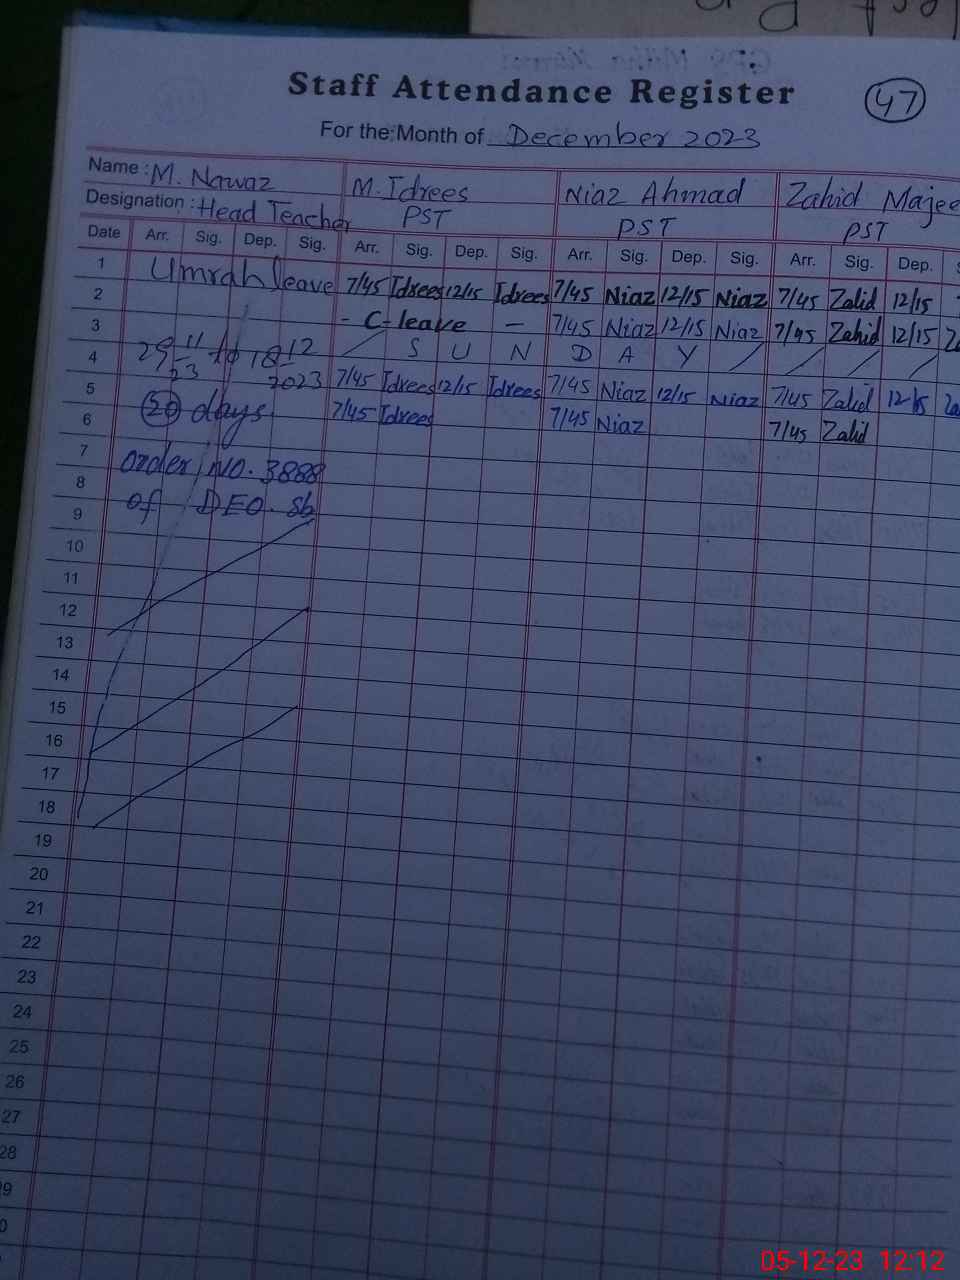 Staff Attendance Register
47
For the Month of December 2023
Name : M. Nawaz M. Idrees Niaz Ahmad Zahid Majee
Designation : Head Teacher PST PST PST
Date Arr. Sig. Dep. Sig. Arr. Sig. Dep. Sig. Arr. Sig. Dep. Sig. Arr. Sig. Dep. S
1 Umrah leave 7/45 Idrees 12/15 Idrees 7/45 Niaz 12/15 Niaz 7/45 Zahid 12/15
2 - C-leave - 7/45 Niaz 12/15 Niaz 7/45 Zahid 12/15 Za
3 S U N D A Y
4 29-11-23 to 18-12-2023 7/45 Idrees 12/15 Idrees 7/45 Niaz 12/15 Niaz 7/45 Zahid 12/15 Za
5 20 days 7/45 Idrees 7/45 Niaz 7/45 Zahid
6
7 order No. 3888
8 of DEO. Sb
9
10
11
12
13
14
15
16
17
18
19
20
21
22
23
24
25
26
27
28
9
0
05-12-23 12:12